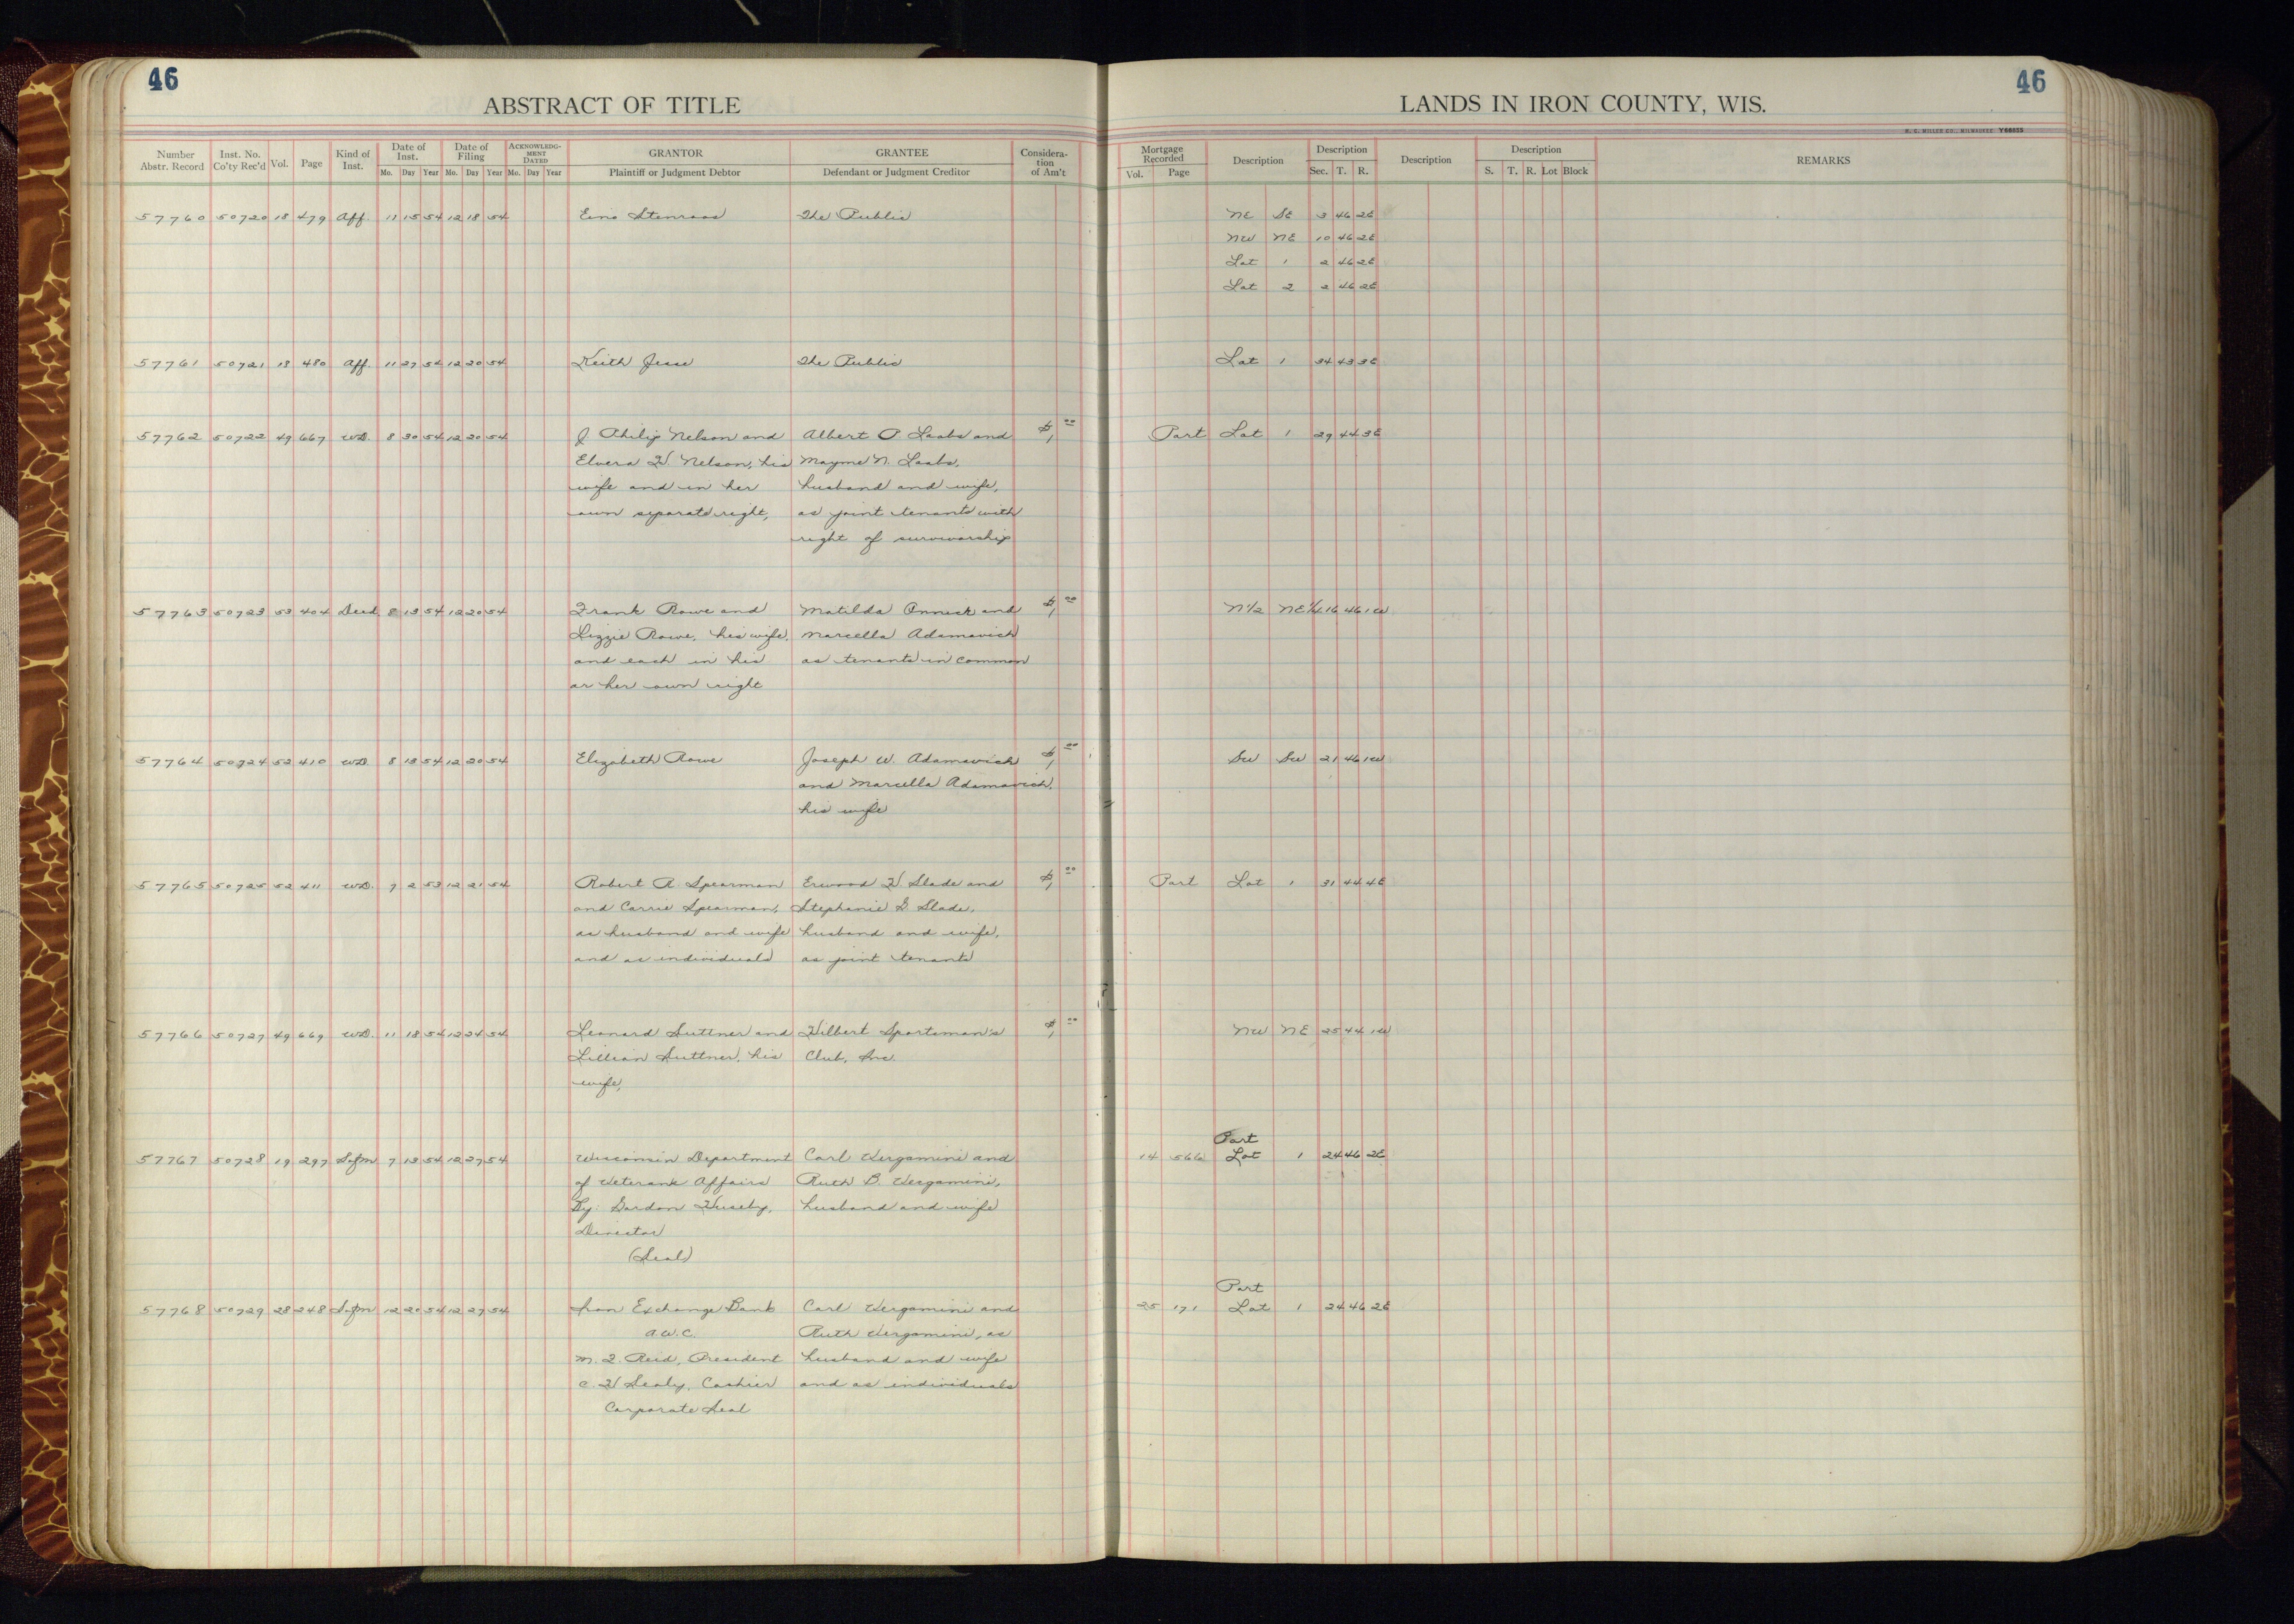 46
46
ABSTRACT OF TITLE
LANDS IN IRON COUNTY, WIS.
H. C. MILLER CO., MILWAUKEE Y68625
Number Abstr. Record Inst. No. Co'ty Rec'd Vol. Page Kind of Inst. Date of Inst. Mo. Day Year Date of Filing Mo. Day Year ACKNOWLEDGMENT DATED Mo. Day Year GRANTOR Plaintiff or Judgment Debtor GRANTEE Defendant or Judgment Creditor Consideration of Am't Mortgage Recorded Vol. Page Description Description Sec. T. R. Description Description S. T. R. Lot Block REMARKS
57760 50720 18 479 Aff. 11 15 54 12 18 54 Eino Stenroos The Public NE SE 3 46 2E
NW NE 10 46 2E
Lot 1 2 46 2E
Lot 2 2 46 2E
57761 50721 18 480 Aff. 11 27 54 12 20 54 Keith Jesse The Public Lot 1 34 43 3E
57762 50722 49 667 WD. 8 30 54 12 20 54 J Philip Nelson and Albert P Laabs and $1 00 Part Lot 1 29 44 3E
Elvera H. Nelson, his Mayme N. Laabs,
wife and in her husband and wife,
own separate right, as joint tenants with
right of survivorship
57763 50723 53 404 Deed 8 13 54 12 20 54 Frank Rowe and Matilda Onnick and $1 00 N1/2 NE1/4 16 46 1W
Lizzie Rowe, his wife, Marcella Adamavich
and each in his as tenants in common
or her own right
57764 50724 52 410 WD 8 13 54 12 20 54 Elizabeth Rowe Joseph W. Adamavich $1 00 SW SW 21 46 1W
and Marcella Adamavich,
his wife
57765 50725 52 411 WD. 9 2 53 12 21 54 Robert R. Spearman Erwood H. Slade and $1 00 Part Lot 1 31 44 4E
and Carrie Spearman, Stephanie G. Slade,
as husband and wife husband and wife,
and as individuals as joint tenants
57766 50727 49 669 WD. 11 18 54 12 24 54 Leonard Suttner and Hilbert Sportsman's $1 00 NW NE 25 44 1W
Lillian Suttner, his Club, Inc.
wife,
Part
57767 50728 19 297 Sofm 7 13 54 12 27 54 Wisconsin Department Carl Vergamini and 14 566 Lot 1 24 46 2E
of Veterans Affairs Ruth B. Vergamini,
By: Gordon Huseby, husband and wife
Director
(Seal)
Part
57768 50729 28 248 Sofm 12 20 54 12 27 54 Iron Exchange Bank Carl Vergamini and 25 171 Lot 1 24 46 2E
A.W.C. Ruth Vergamini, as
M. J. Reid, President husband and wife
C. H. Sealy, Cashier and as individuals
Corporate Seal